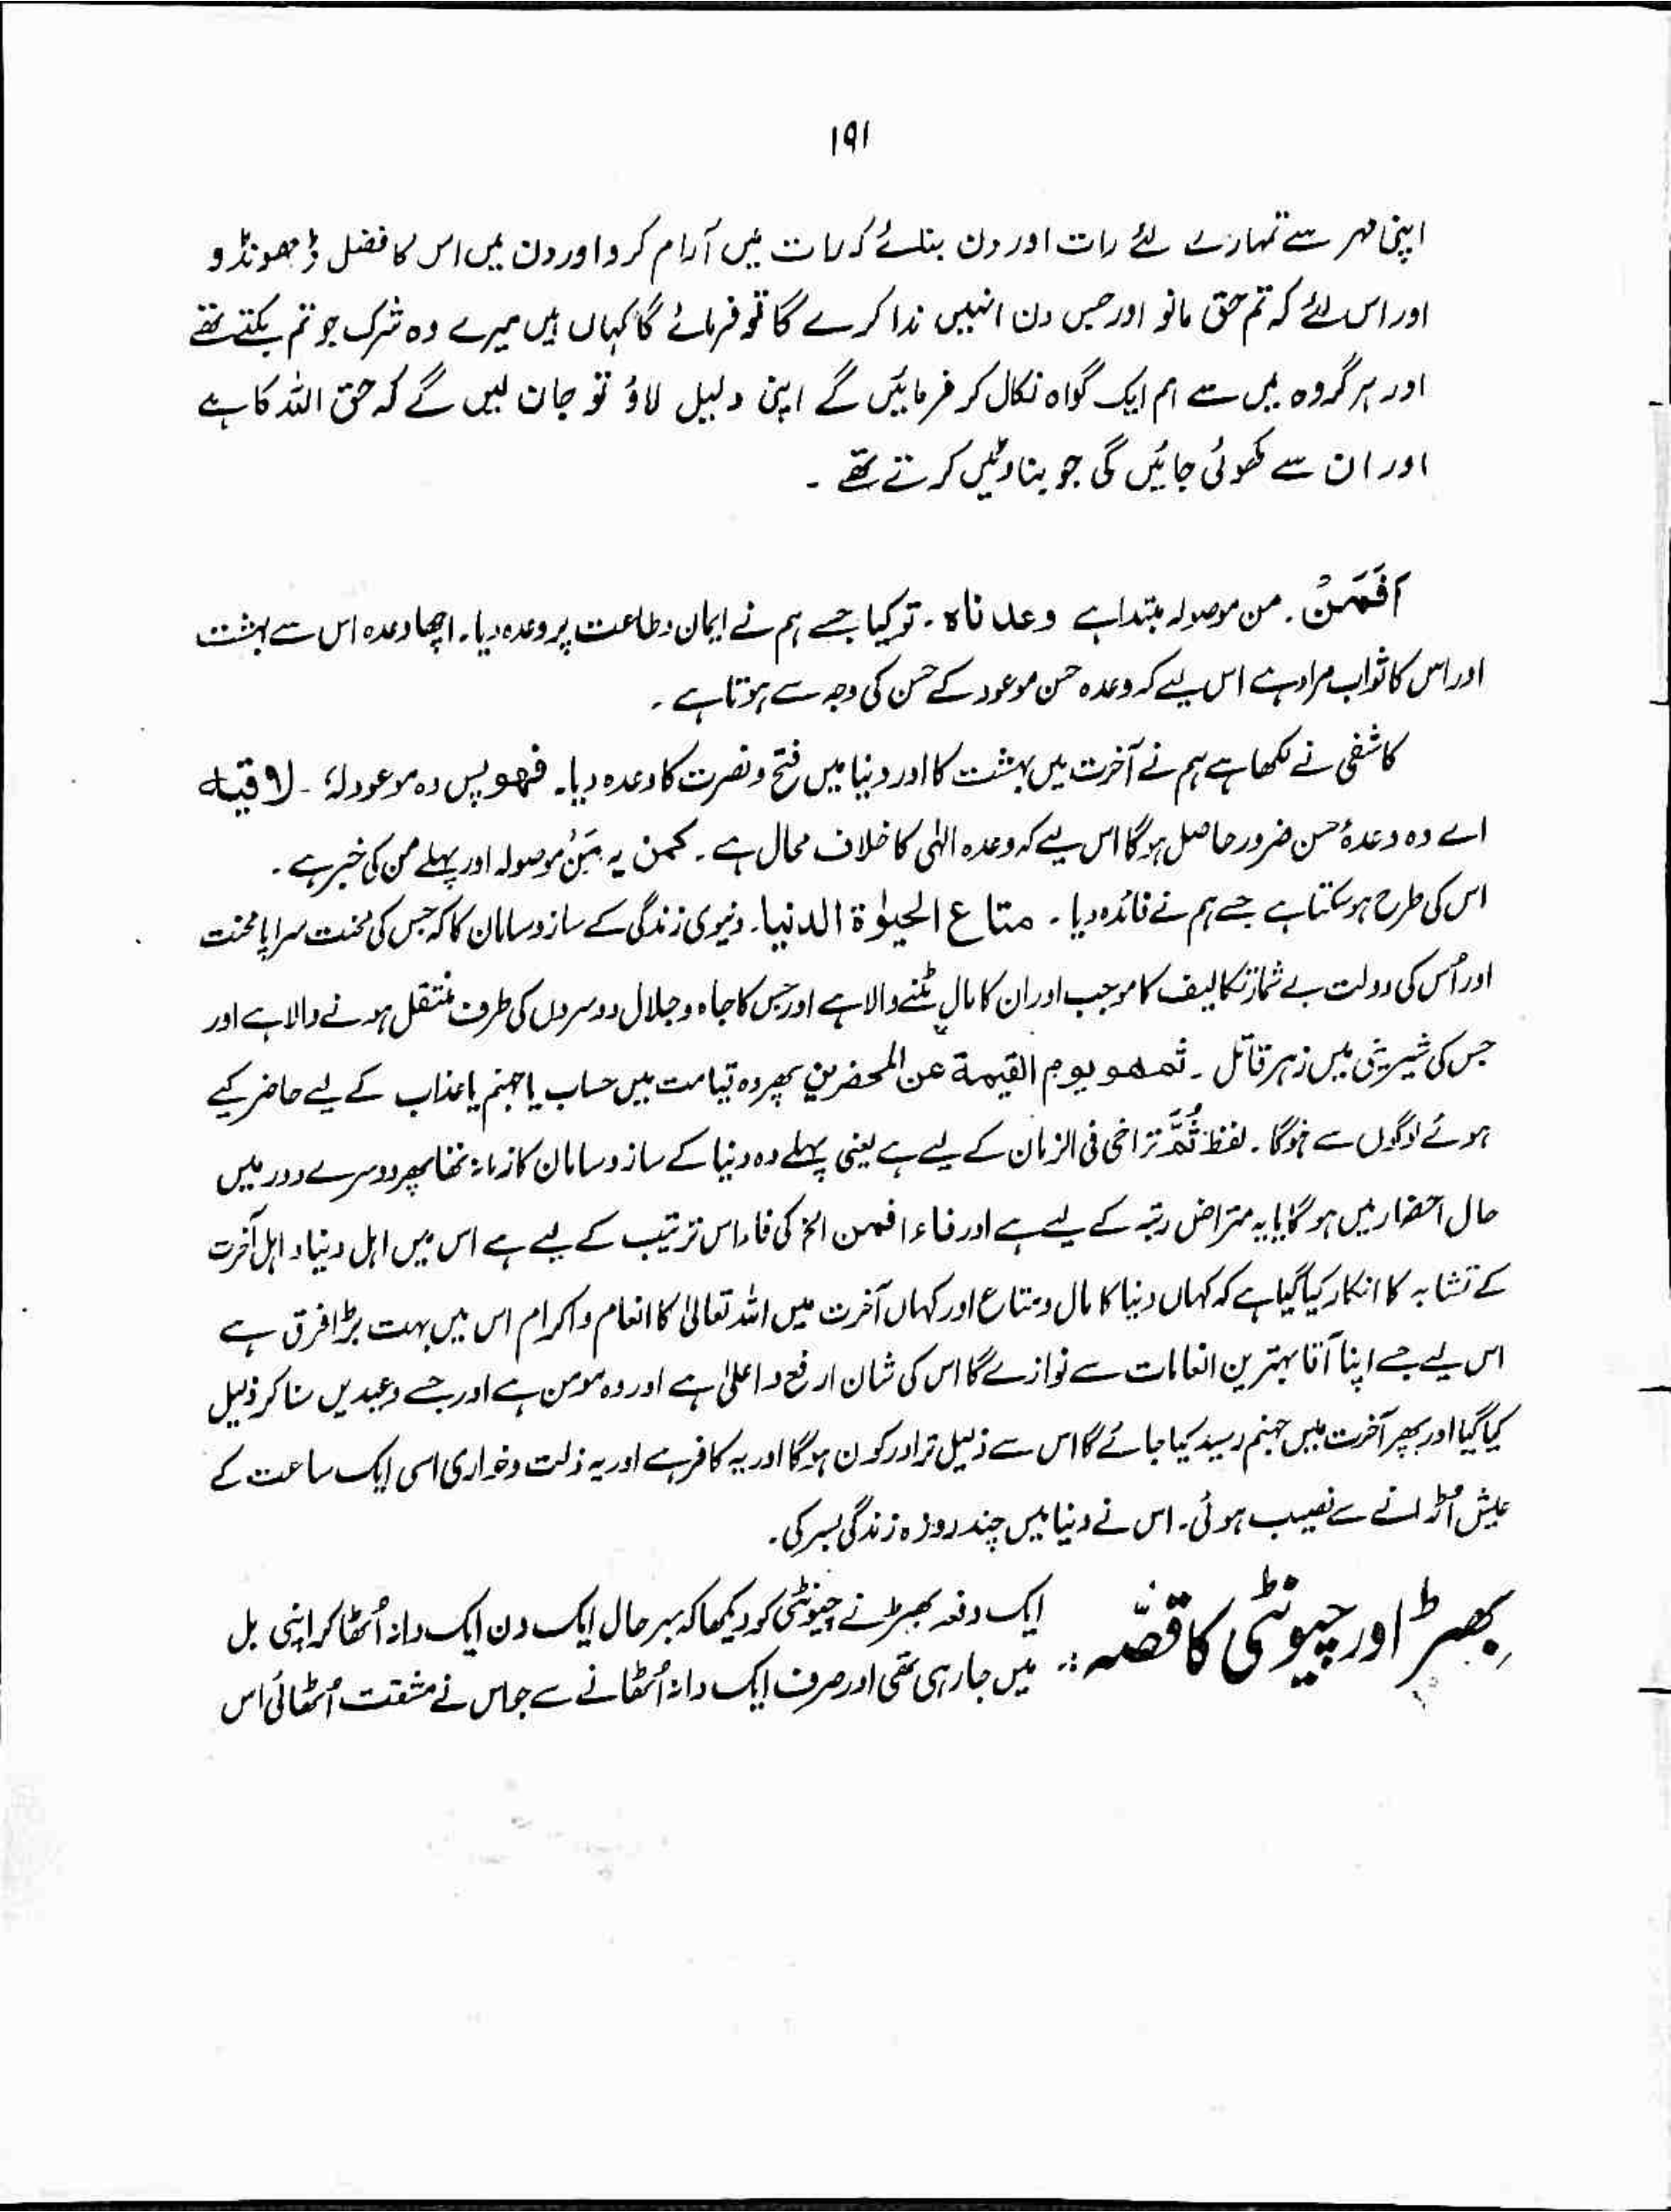 ۱۹۱
اپنی مہر سے تمہارے لئے رات اور دن بنائے کہ رات میں آرام کرو اور دن میں اس کا فضل ڈھونڈو
اور اس لئے کہ تم حق مانو اور جس دن انہیں ندا کرے گا تو فرمائے گا کہاں ہیں میرے وہ شرک جو تم بکتے تھے
اور ہر گروہ میں سے ہم ایک گواہ نکال کر فرمائیں گے اپنی دلیل لاؤ تو جان لیں گے کہ حق اللہ کا ہے
اور ان سے کھوئی جائیں گی جو بناوٹیں کرتے تھے ۔
اَفَمَنْ ۔ من موصولہ مبتدا ہے وعدناہ ۔ تو کیا جسے ہم نے ایمان و طاعت پر وعدہ دیا۔ اچھا وعدہ اس سے بہشت
اور اس کا ثواب مراد ہے اس لیے کہ وعدہ حسن موعود کے حسن کی وجہ سے ہوتا ہے ۔
کاشفی نے لکھا ہے ہم نے آخرت میں بہشت کا اور دنیا میں فتح و نصرت کا وعدہ دیا۔ فھو پس وہ موعود لہٗ ۔ لاقیہ
اے وہ وعدۂ حسن ضرور حاصل ہوگا اس لیے کہ وعدہ الٰہی کا خلاف محال ہے ۔ کمن یہ مَنْ موصولہ اور پہلے من کی خبر ہے ۔
اس کی طرح ہو سکتا ہے جسے ہم نے فائدہ دیا ۔ متاع الحیٰوة الدنیا۔ دنیوی زندگی کے ساز و سامان کا کہ جس کی محنت سراپا محنت
اور اُس کی دولت بے شمار تکالیف کا موجب اور ان کا مال مٹنے والا ہے اور جس کا جاہ و جلال دوسروں کی طرف منتقل ہونے والا ہے اور
جس کی شیرینی میں زہر قاتل ۔ ثم ھو یوم القیمة من المحضرین پھر وہ قیامت میں حساب یا جہنم یا عذاب کے لیے حاضر کیے
ہوئے لوگوں سے ہوگا ۔ لفظ ثُمَّ تراخی فی الزمان کے لیے ہے یعنی پہلے وہ دنیا کے ساز و سامان کا زمانہ تھا پھر دوسرے دور میں
حال احضار میں ہوگا یا یہ متراض رتبہ کے لیے ہے اور فاء افمن الخ کی فاء اس ترتیب کے لیے ہے اس میں اہل دنیا و اہل آخرت
کے تشابہ کا انکار کیا گیا ہے کہ کہاں دنیا کا مال و متاع اور کہاں آخرت میں اللہ تعالیٰ کا انعام و اکرام اس میں بہت بڑا فرق ہے
اس لیے جسے اپنا آقا بہترین انعامات سے نوازے گا اس کی شان ارفع و اعلیٰ ہے اور وہ مومن ہے اور جسے وعیدیں سنا کر ذلیل
کیا گیا اور پھر آخرت میں جہنم رسید کیا جائے گا اس سے ذلیل تر اور کون ہوگا اور یہ کافر ہے اور یہ ذلت و خواری اسی ایک ساعت کے
عیش اُڑانے سے نصیب ہوئی۔ اس نے دنیا میں چند روزہ زندگی بسر کی۔
بھڑ اور چیونٹی کا قصّہ :۔ ایک دفعہ بھڑ نے چیونٹی کو دیکھا کہ بہر حال ایک دن ایک دانہ اُٹھا کر اپنی بل
میں جا رہی تھی اور صرف ایک دانہ اُٹھانے سے جو اس نے مشقت اُٹھائی اس